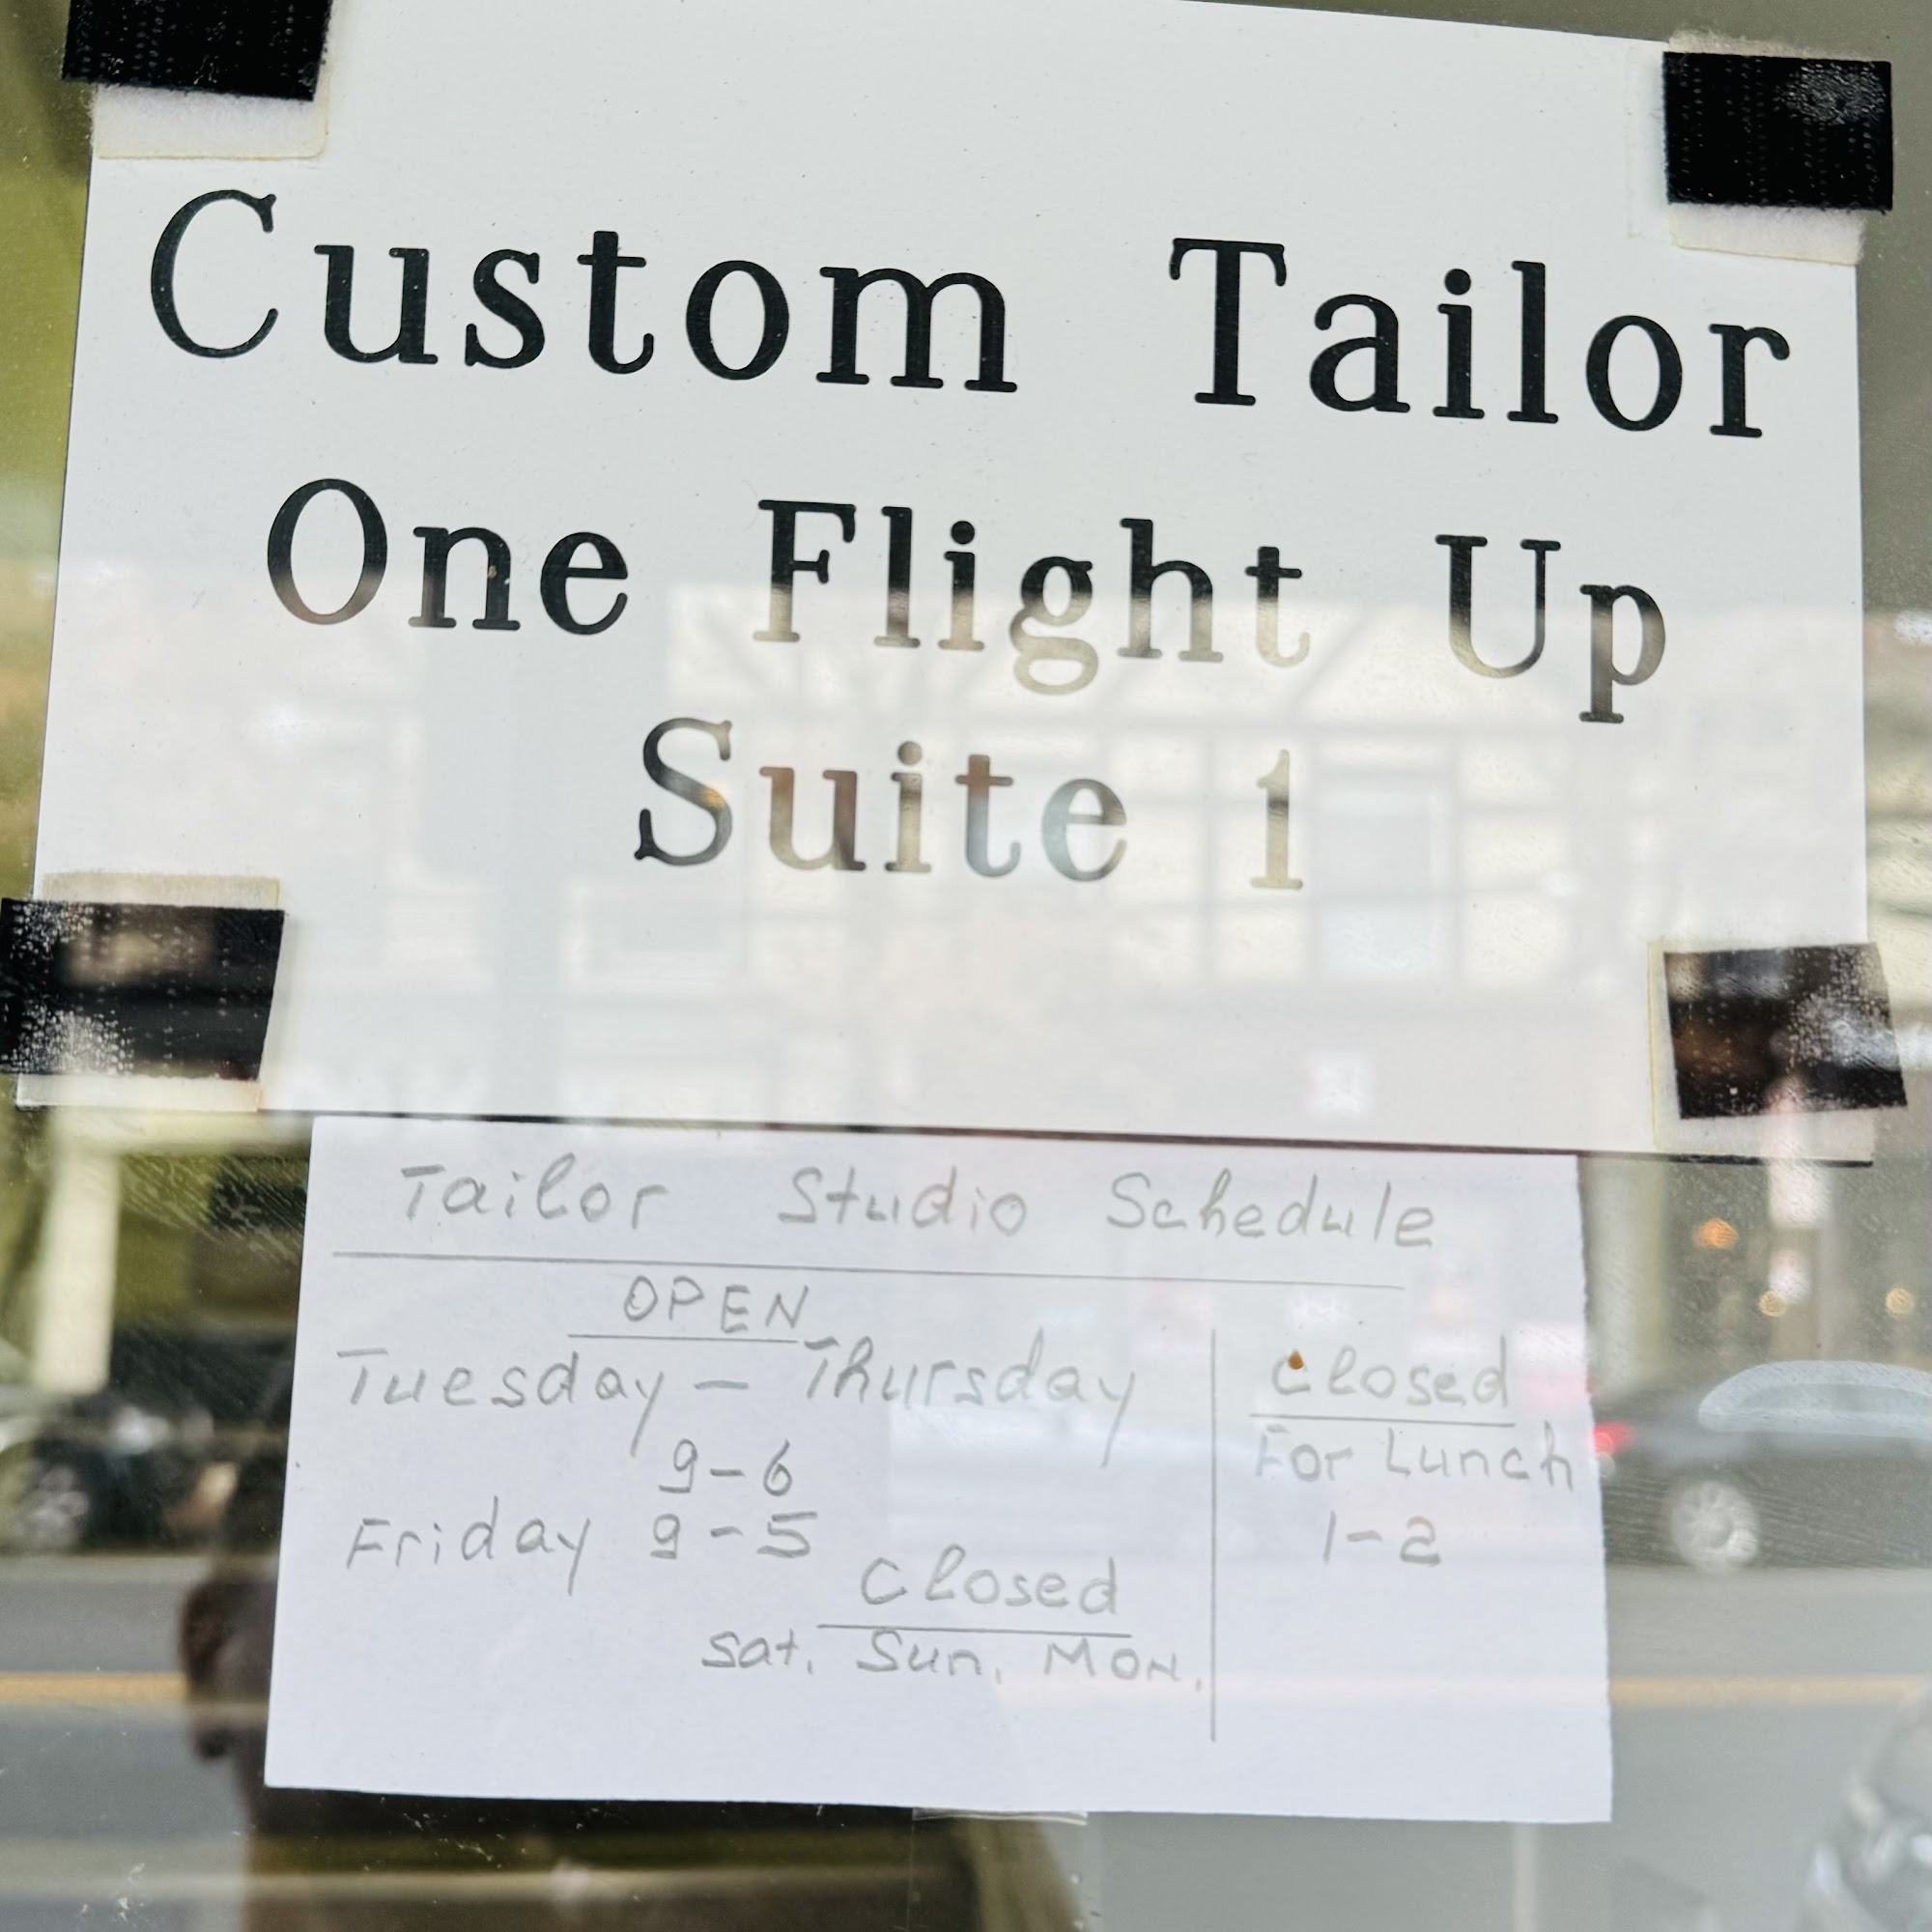 Custom Tailor
One Flight Up
Suite 1
Tailor Studio Schedule
OPEN
Tuesday - Thursday
9-6
Friday 9-5
Closed
Sat. Sun. Mon.
Closed
For Lunch
1-2